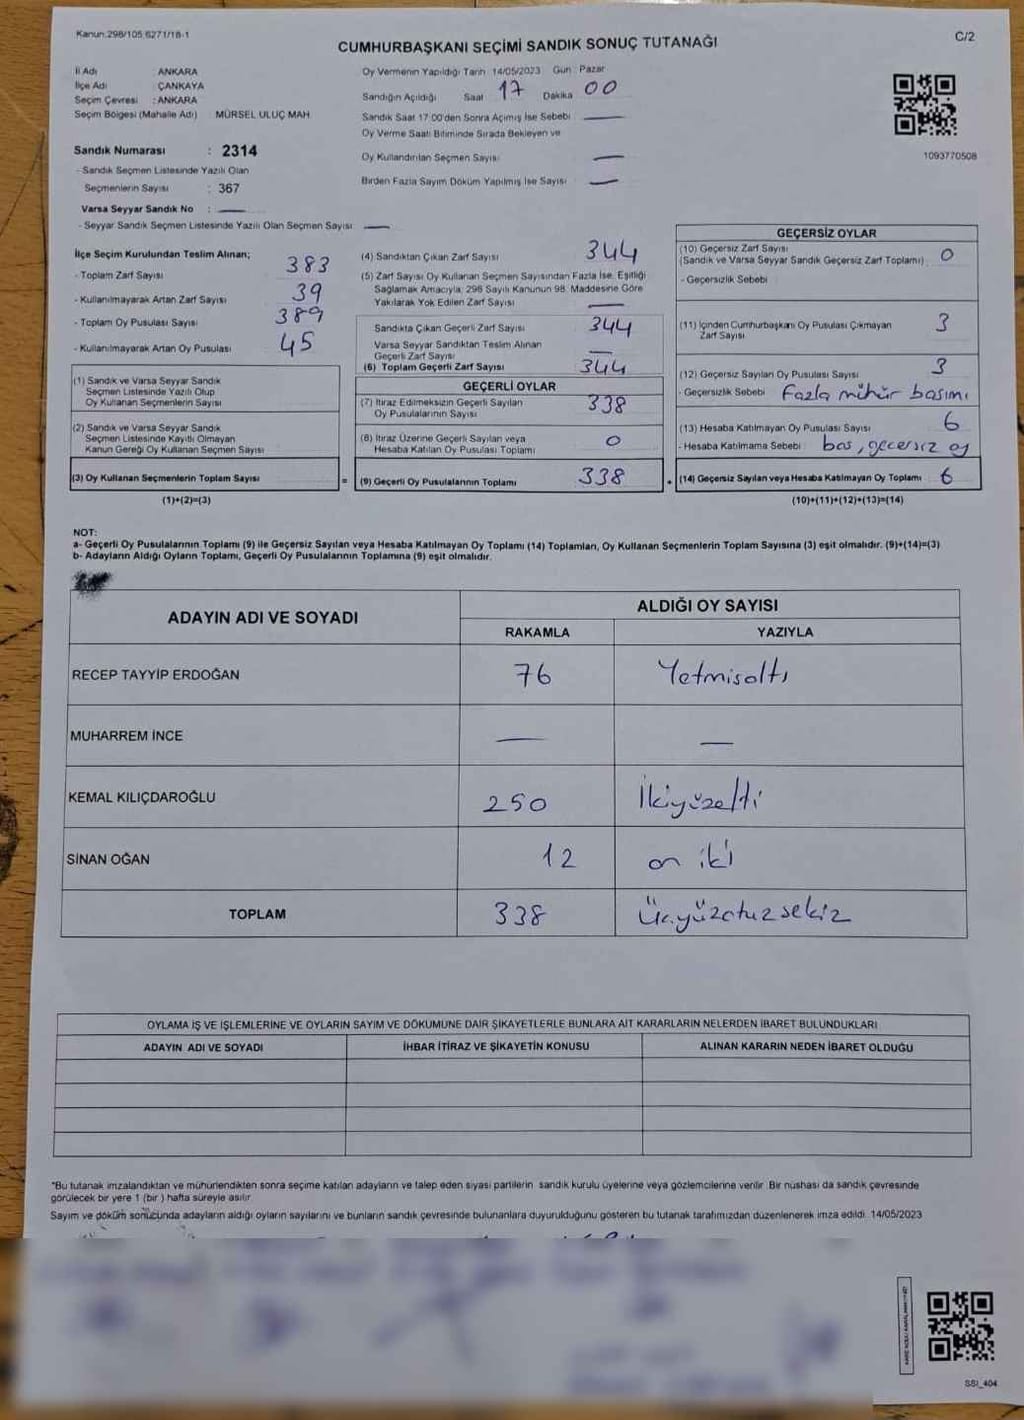 Kanun.298/105 6271/18-1
C/2
CUMHURBAŞKANI SEÇİMİ SANDIK SONUÇ TUTANAĞI
İl Adı : ANKARA
İlçe Adı : ÇANKAYA
Seçim Çevresi : ANKARA
Seçim Bölgesi (Mahalle Adı) MÜRSEL ULUÇ MAH
Sandık Numarası : 2314
- Sandık Seçmen Listesinde Yazılı Olan
Seçmenlerin Sayısı : 367
Varsa Seyyar Sandık No : —
- Seyyar Sandık Seçmen Listesinde Yazılı Olan Seçmen Sayısı —
Oy Vermenin Yapıldığı Tarih 14/05/2023 Gün Pazar
Sandığın Açıldığı Saat 17 Dakika 00
Sandık Saat 17:00'den Sonra Açımış İse Sebebi —
Oy Verme Saati Bitiminde Sırada Bekleyen ve
Oy Kullandırılan Seçmen Sayısı —
Birden Fazla Sayım Döküm Yapılmış İse Sayısı —
1093770508
İlçe Seçim Kurulundan Teslim Alınan;
- Toplam Zarf Sayısı 383
- Kullanılmayarak Artan Zarf Sayısı 39
- Toplam Oy Pusulası Sayısı 389
- Kullanılmayarak Artan Oy Pusulası 45
(1) Sandık ve Varsa Seyyar Sandık
Seçmen Listesinde Yazılı Olup
Oy Kullanan Seçmenlerin Sayısı
(2) Sandık ve Varsa Seyyar Sandık
Seçmen Listesinde Kayıtlı Olmayan
Kanun Gereği Oy Kullanan Seçmen Sayısı
(3) Oy Kullanan Seçmenlerin Toplam Sayısı =
(1)+(2)=(3)
(4) Sandıktan Çıkan Zarf Sayısı 344
(5) Zarf Sayısı Oy Kullanan Seçmen Sayısından Fazla İse, Eşitliği
Sağlamak Amacıyla, 298 Sayılı Kanunun 98. Maddesine Göre
Yakılarak Yok Edilen Zarf Sayısı —
Sandıkta Çıkan Geçerli Zarf Sayısı 344
Varsa Seyyar Sandıktan Teslim Alınan
Geçerli Zarf Sayısı —
(6) Toplam Geçerli Zarf Sayısı 344
GEÇERLİ OYLAR
(7) İtiraz Edilmeksizin Geçerli Sayılan
Oy Pusulalarının Sayısı 338
(8) İtiraz Üzerine Geçerli Sayılan veya
Hesaba Katılan Oy Pusulası Toplamı 0
(9) Geçerli Oy Pusulalarının Toplamı 338 +
GEÇERSİZ OYLAR
(10) Geçersiz Zarf Sayısı
(Sandık ve Varsa Seyyar Sandık Geçersiz Zarf Toplamı) 0
- Geçersizlik Sebebi
(11) İçinden Cumhurbaşkanı Oy Pusulası Çıkmayan
Zarf Sayısı 3
(12) Geçersiz Sayılan Oy Pusulası Sayısı 3
- Geçersizlik Sebebi Fazla mühür basımı
(13) Hesaba Katılmayan Oy Pusulası Sayısı 6
- Hesaba Katılmama Sebebi boş, geçersiz oy
(14) Geçersiz Sayılan veya Hesaba Katılmayan Oy Toplamı 6
(10)+(11)+(12)+(13)=(14)
NOT:
a- Geçerli Oy Pusulalarının Toplamı (9) ile Geçersiz Sayılan veya Hesaba Katılmayan Oy Toplamı (14) Toplamları, Oy Kullanan Seçmenlerin Toplam Sayısına (3) eşit olmalıdır. (9)+(14)=(3)
b- Adayların Aldığı Oyların Toplamı, Geçerli Oy Pusulalarının Toplamına (9) eşit olmalıdır.
ADAYIN ADI VE SOYADI ALDIĞI OY SAYISI
RAKAMLA YAZIYLA
RECEP TAYYİP ERDOĞAN 76 Yetmişaltı
MUHARREM İNCE — —
KEMAL KILIÇDAROĞLU 250 İkiyüzelli
SİNAN OĞAN 12 on iki
TOPLAM 338 Üçyüzotuzsekiz
OYLAMA İŞ VE İŞLEMLERİNE VE OYLARIN SAYIM VE DÖKÜMÜNE DAİR ŞİKAYETLERLE BUNLARA AİT KARARLARIN NELERDEN İBARET BULUNDUKLARI
ADAYIN ADI VE SOYADI İHBAR İTİRAZ VE ŞİKAYETİN KONUSU ALINAN KARARIN NEDEN İBARET OLDUĞU
*Bu tutanak imzalandıktan ve mühürlendikten sonra seçime katılan adayların ve talep eden siyasi partilerin sandık kurulu üyelerine veya gözlemcilerine verilir. Bir nüshası da sandık çevresinde
görülecek bir yere 1 (bir) hafta süreyle asılır
Sayım ve döküm sonucunda adayların aldığı oyların sayılarını ve bunların sandık çevresinde bulunanlara duyurulduğunu gösteren bu tutanak tarafımızdan düzenlenerek imza edildi. 14/05/2023
SSI_404